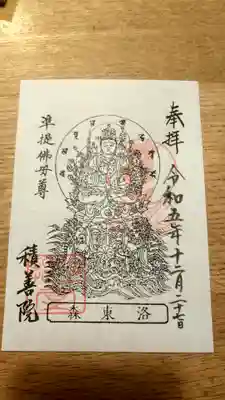 奉拝
令和五年十二月二十七日
準提佛母尊
積善院
森東洛